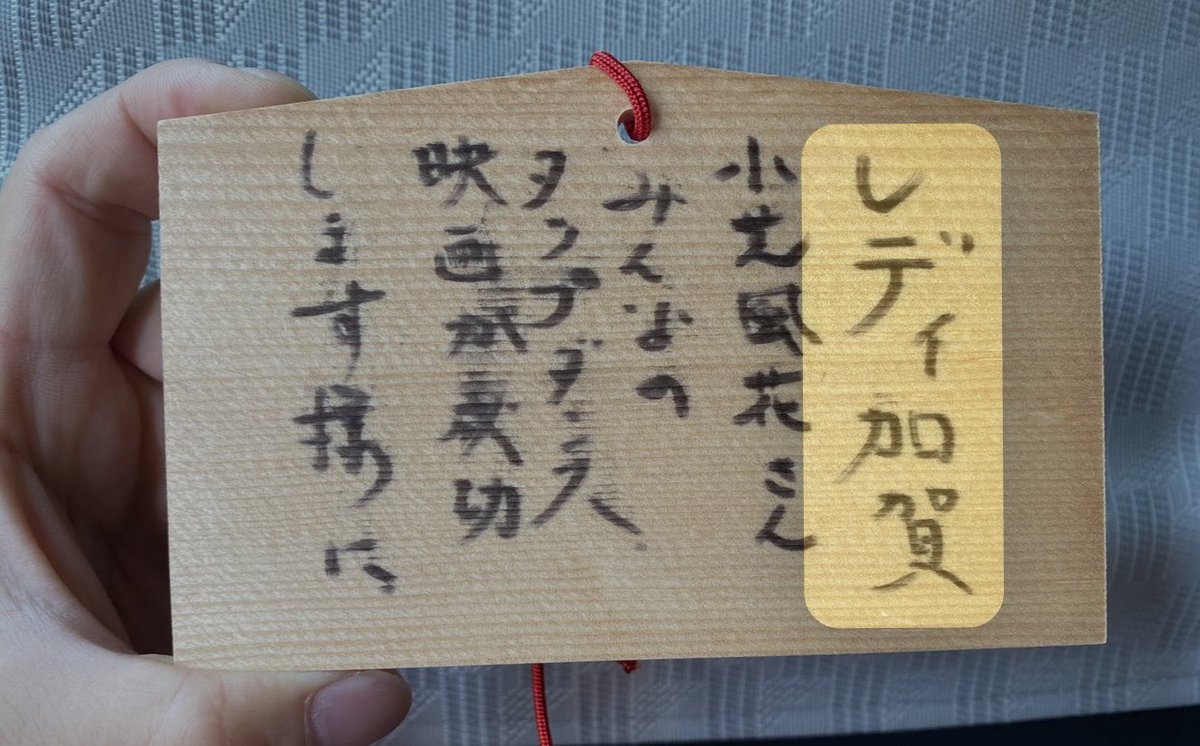 レディ加賀
小芝風花さん
みんなの
タップダンス
映画成功
します様に